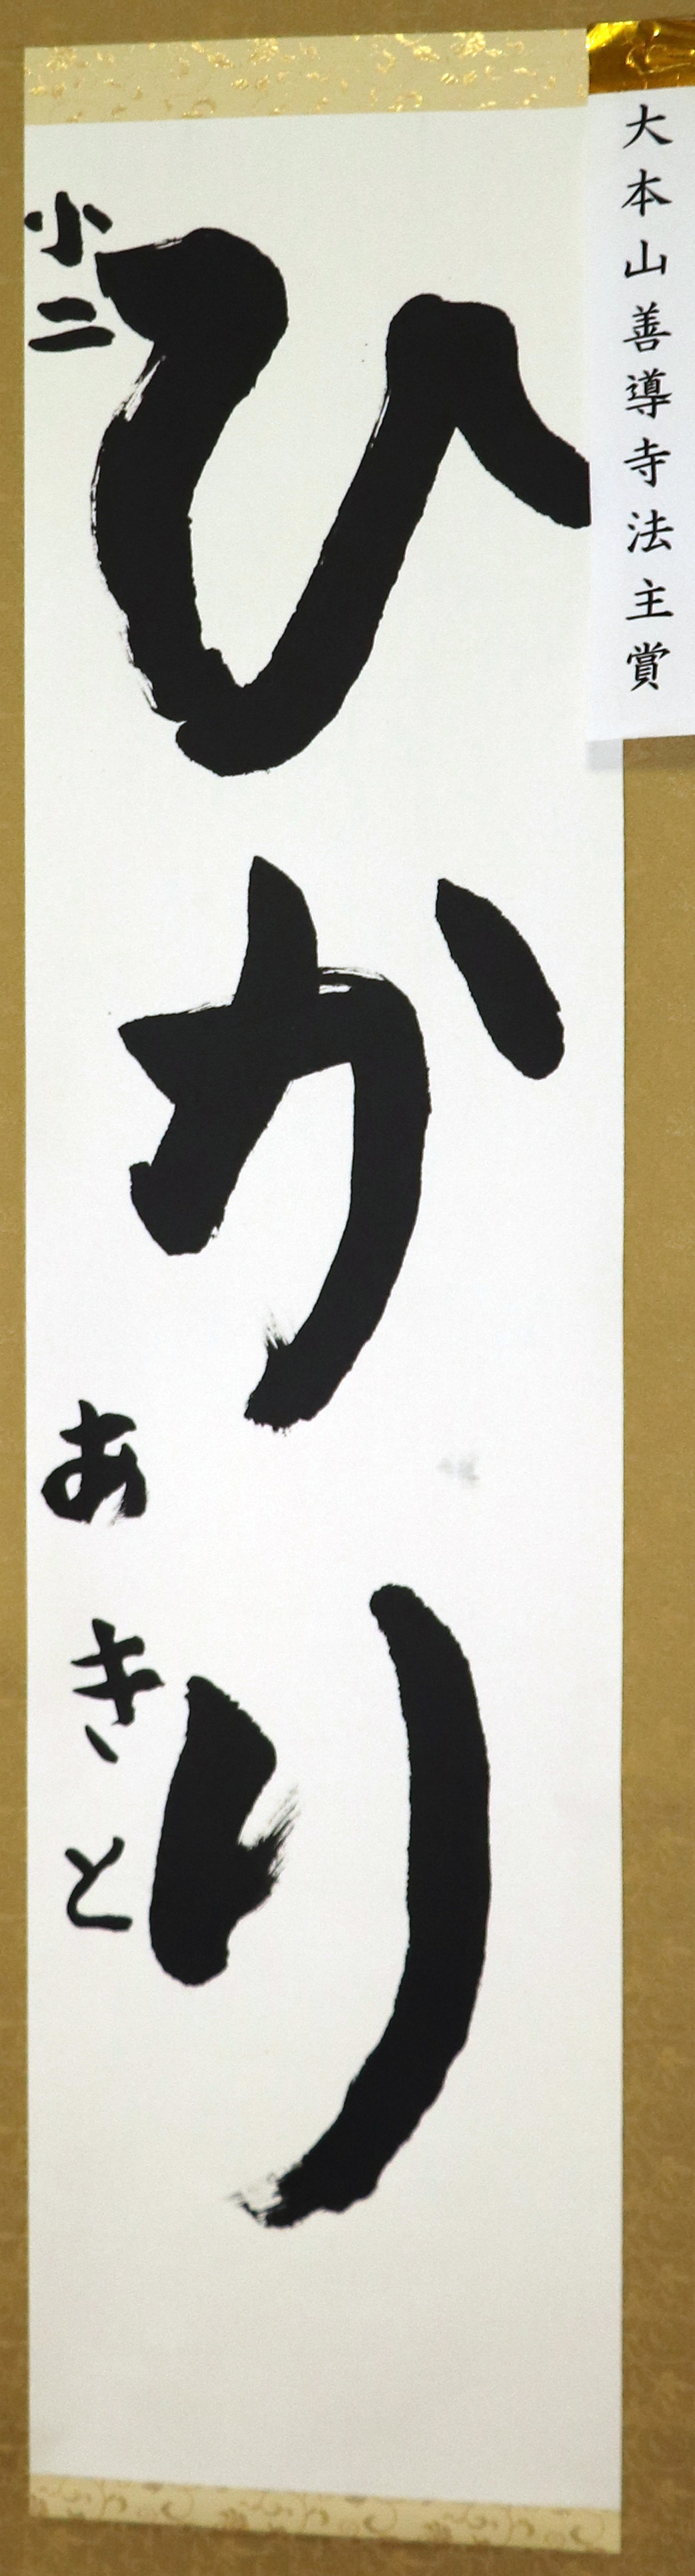 大本山善導寺法主賞
ひかり
小二
あきと